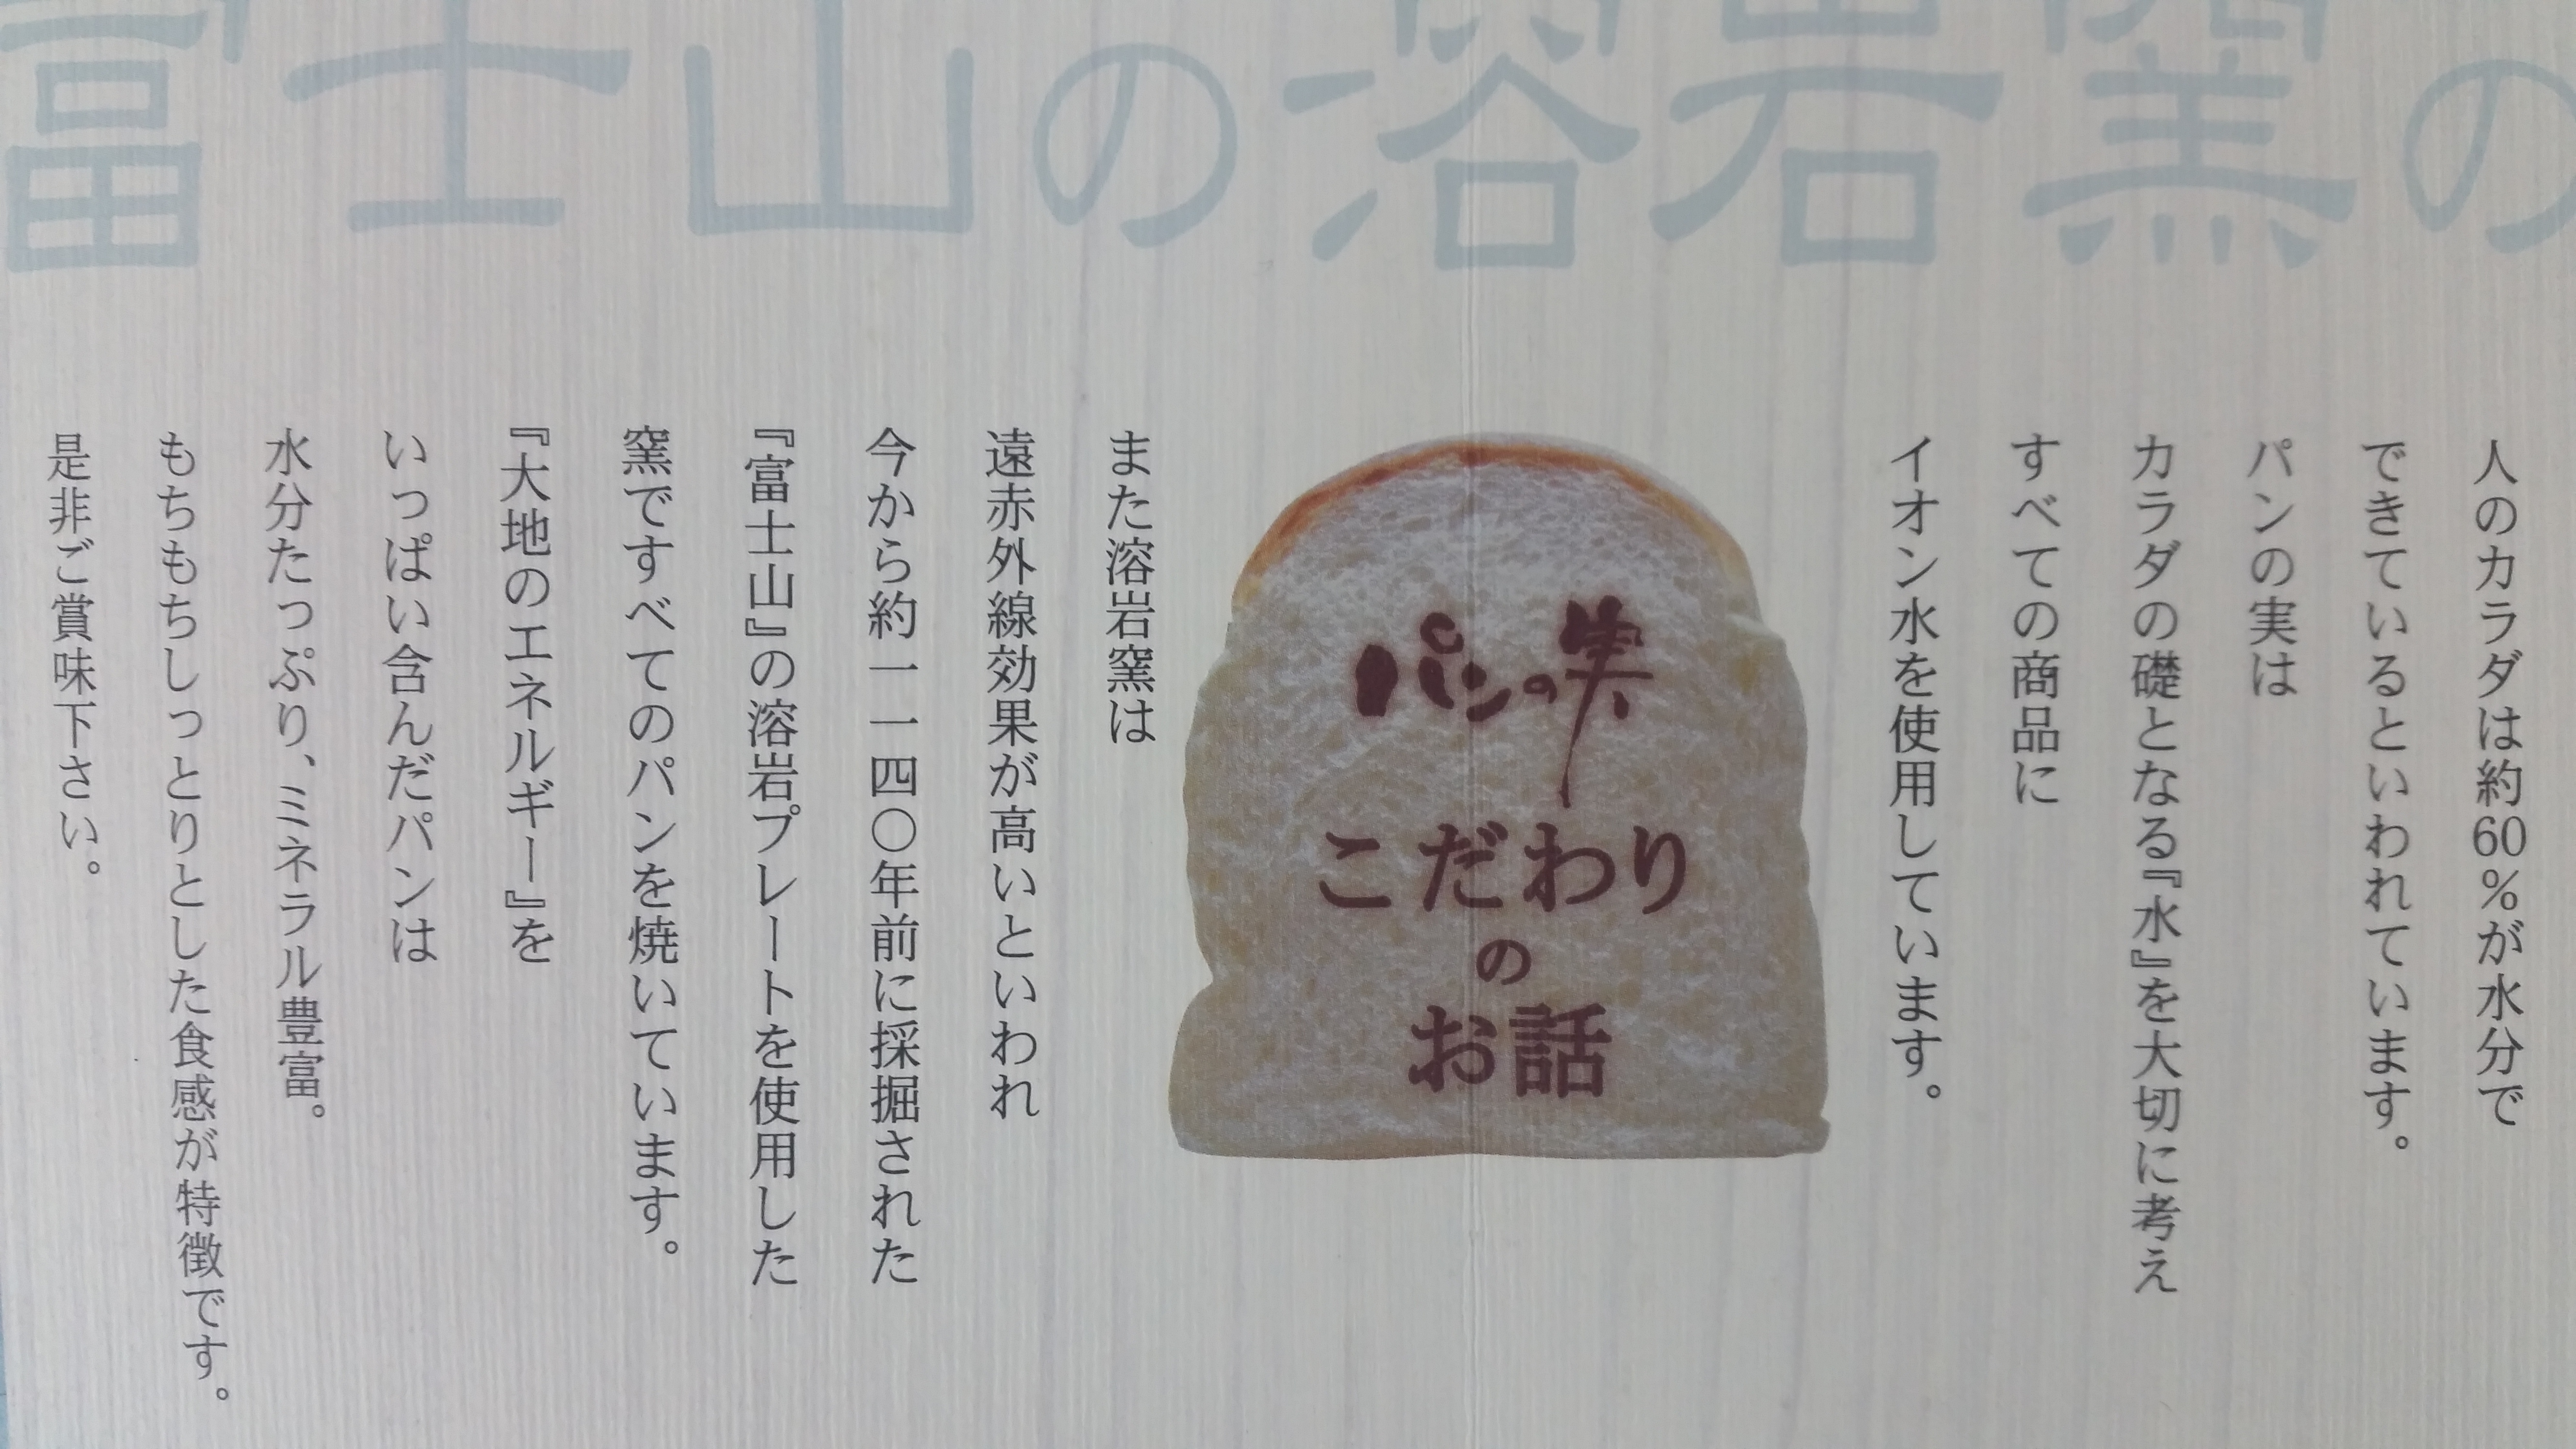 富士山の溶岩窯の
人のカラダは約60%が水分で
できているといわれています。
パンの実は
カラダの礎となる『水』を大切に考え
すべての商品に
イオン水を使用しています。
パンの実
こだわり
の
お話
また溶岩窯は
遠赤外線効果が高いといわれ
今から約一一四〇年前に採掘された
『富士山』の溶岩プレートを使用した
窯ですべてのパンを焼いています。
『大地のエネルギー』を
いっぱい含んだパンは
水分たっぷり、ミネラル豊富。
もちもちしっとりとした食感が特徴です。
是非ご賞味下さい。